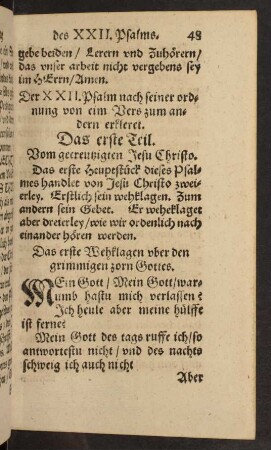 des XXII. Psalms. 48
gebe beiden / Lerern vnd Zuhörern /
das vnser arbeit nicht vergebens sey
im HErrn / Amen.
Der XXII. Psalm nach seiner ord⸗
nung von eim Vers zum an⸗
dern erkleret.
Das erste Teil.
Vom gecreutzigten Jesu Christo.
Das erste Heuptstück dieses Psal⸗
mes handlet von Jesu Christo zwei⸗
erley. Erstlich sein wehklagen. Zum
andern sein Gebet. Er wehklaget
aber dreierley / wie wir ordenlich nach
einander hören werden.
Das erste Wehklagen vber den
grimmigen zorn Gottes.
MEin Gott / Mein Gott / war⸗
umb hastu mich verlassen?
Ich heule aber meine hülffe
ist ferne?
Mein Gott des tags ruffe ich / so
antwortestu nicht / vnd des nachts
schweig ich auch nicht
Aber